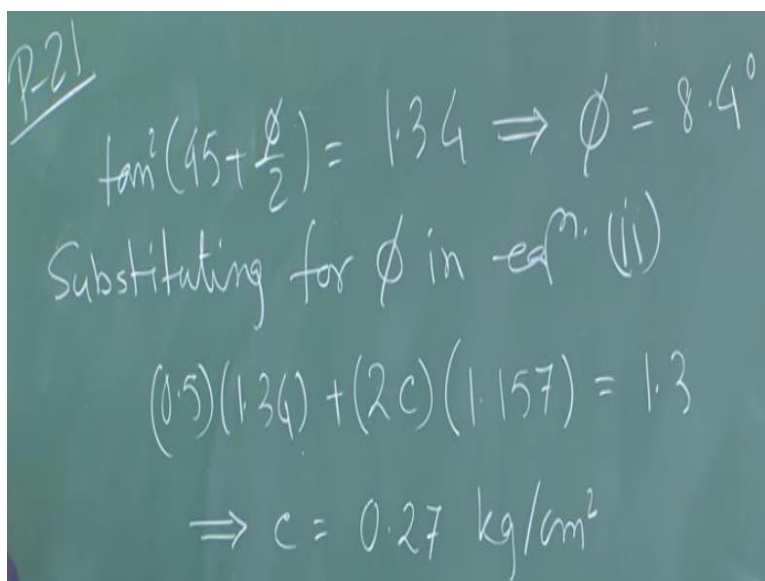 P-21
tan²(45+φ/2) = 1.34 ⇒ φ = 8.4°
Substituting for φ in eqⁿ. (ii)
(0.5)(1.34) + (2c)(1.157) = 1.3
⇒ c = 0.27 kg/cm²